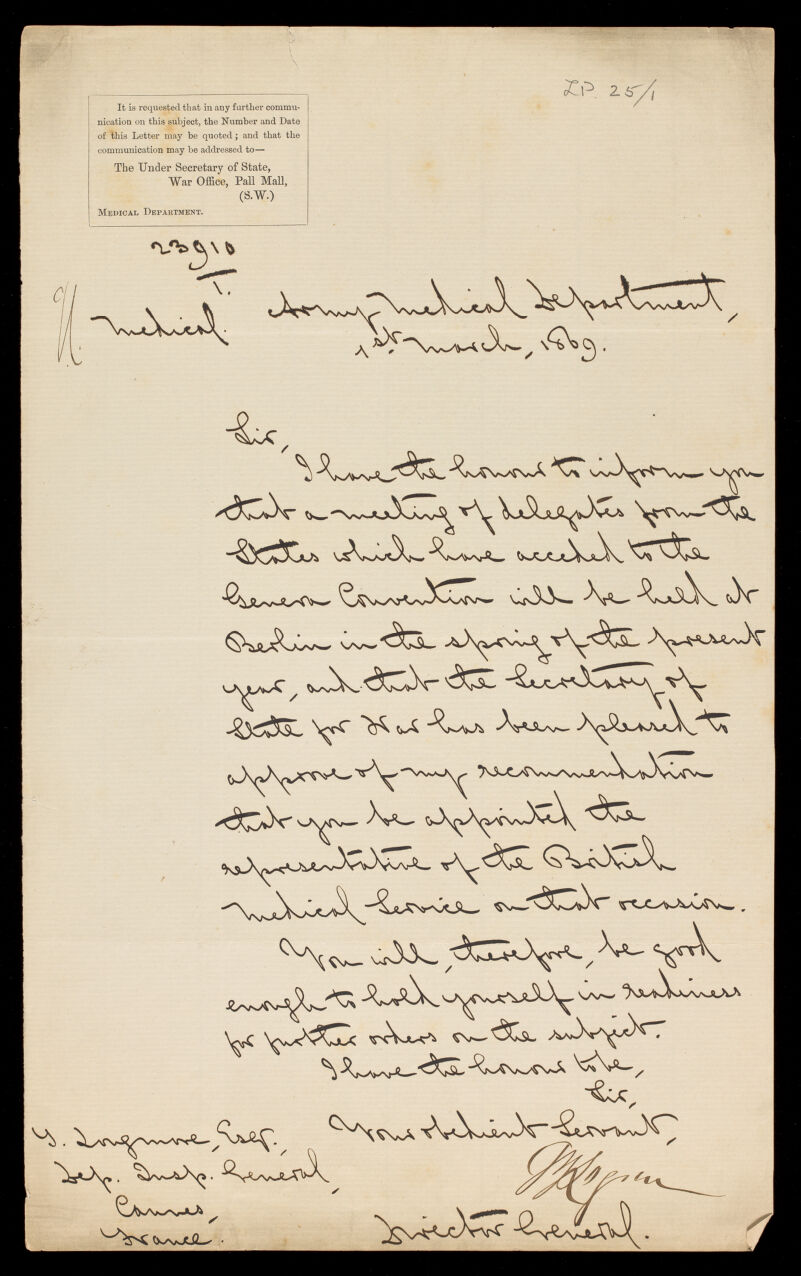 LP. 25/1
It is requested that in any further commu-
nication on this subject, the Number and Date
of this Letter may be quoted; and that the
communication may be addressed to—
The Under Secretary of State,
War Office, Pall Mall,
(S.W.)
MEDICAL DEPARTMENT.
23910
1.
Medical.
Army Medical Department,
1st March, 1869.
Sir,
I have the honour to inform you
that a meeting of delegates from the
States which have acceded to the
Geneva Convention will be held at
Berlin in the spring of the present
year, and that the Secretary of
State for War has been pleased to
approve of my recommendation
that you be appointed the
representative of the British
Medical Service on that occasion.
You will, therefore, be good
enough to hold yourself in readiness
for further orders on the subject.
I have the honour to be,
Sir,
Your obedient Servant,
Logan
Director General.
T. Longmore, Esqr.,
Dep. Insp. General,
Cannes,
France.